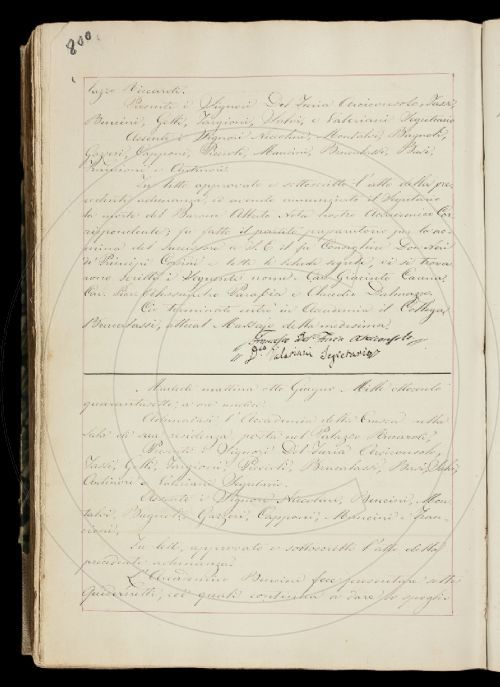 800.
lazzo Riccardi.
Presenti i Signori Del Furia Arciconsolo, Tassi,
Bencini, Gelli, Targioni, Salvi, e Valeriani Segretario
Assenti i Signori Niccolini, Montalvi, Bagnoli,
Gazzeri, Capponi, Piccioli, Mancini, Brucalassi, Busi,
e Antinori.
Fu letto approvato e sottoscritto l'atto della pre-
cedente adunanza, ed avendo annunziato il Segretario
la morte del Barone Alberto Nota nostro Accademico Cor-
rispondente; fu fatto il partito preparatorio per la no-
mina del Successore a S. E. il fu Consigliere Don Neri
de' Principi Corsini e lette le schede segrete, vi si trova-
rono scritti i seguenti nomi. Cav. Giacinto Carena,
Cav. Pier Alessandro Paravia e Claudio Dalmazzo.
Ciò terminato entrò in Accademia il Collega
Brucalassi, attual Massajo della medesima.
Francesco Del Furia Arciconsolo
D. Valeriani Segretario
Martedì mattina otto Giugno Mille ottocento
quarantasette, a ore undici.
Adunatasi l'Accademia della Crusca nella
sala di sua residenza posta nel Palazzo Riccardi,
Presenti i Signori Del Furia Arciconsolo,
Tassi, Gelli, Targioni, Piccioli, Brucalassi, Busi, Salvi,
Antinori e Valeriani Segretario.
Assenti i Signori Niccolini, Bencini, Mon-
talvi, Bagnoli, Gazzeri, Capponi, Mancini e
Fu letto, approvato e sottoscritto l'atto della
precedente adunanza.
L'Accademico Bencini fece presentare altri
Quadernetti, coi quali continua a dare lo spoglio